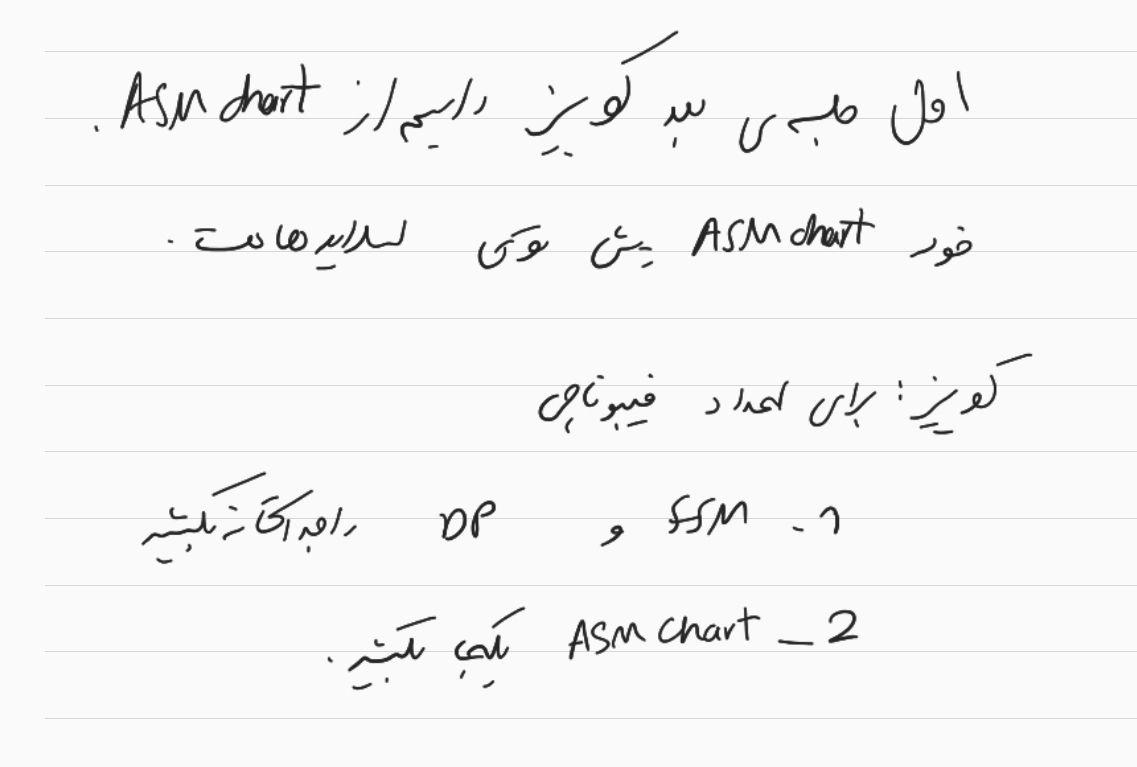 اول جلسه ی بعد کویز داریم از ASM chart .
خود ASM chart پیش توی اسلاید هاست .
کویز : برای اعداد فیبوناچی
1 - FSM و DP را جداگانه بکشید
2 - ASM chart یکجا بکشید .